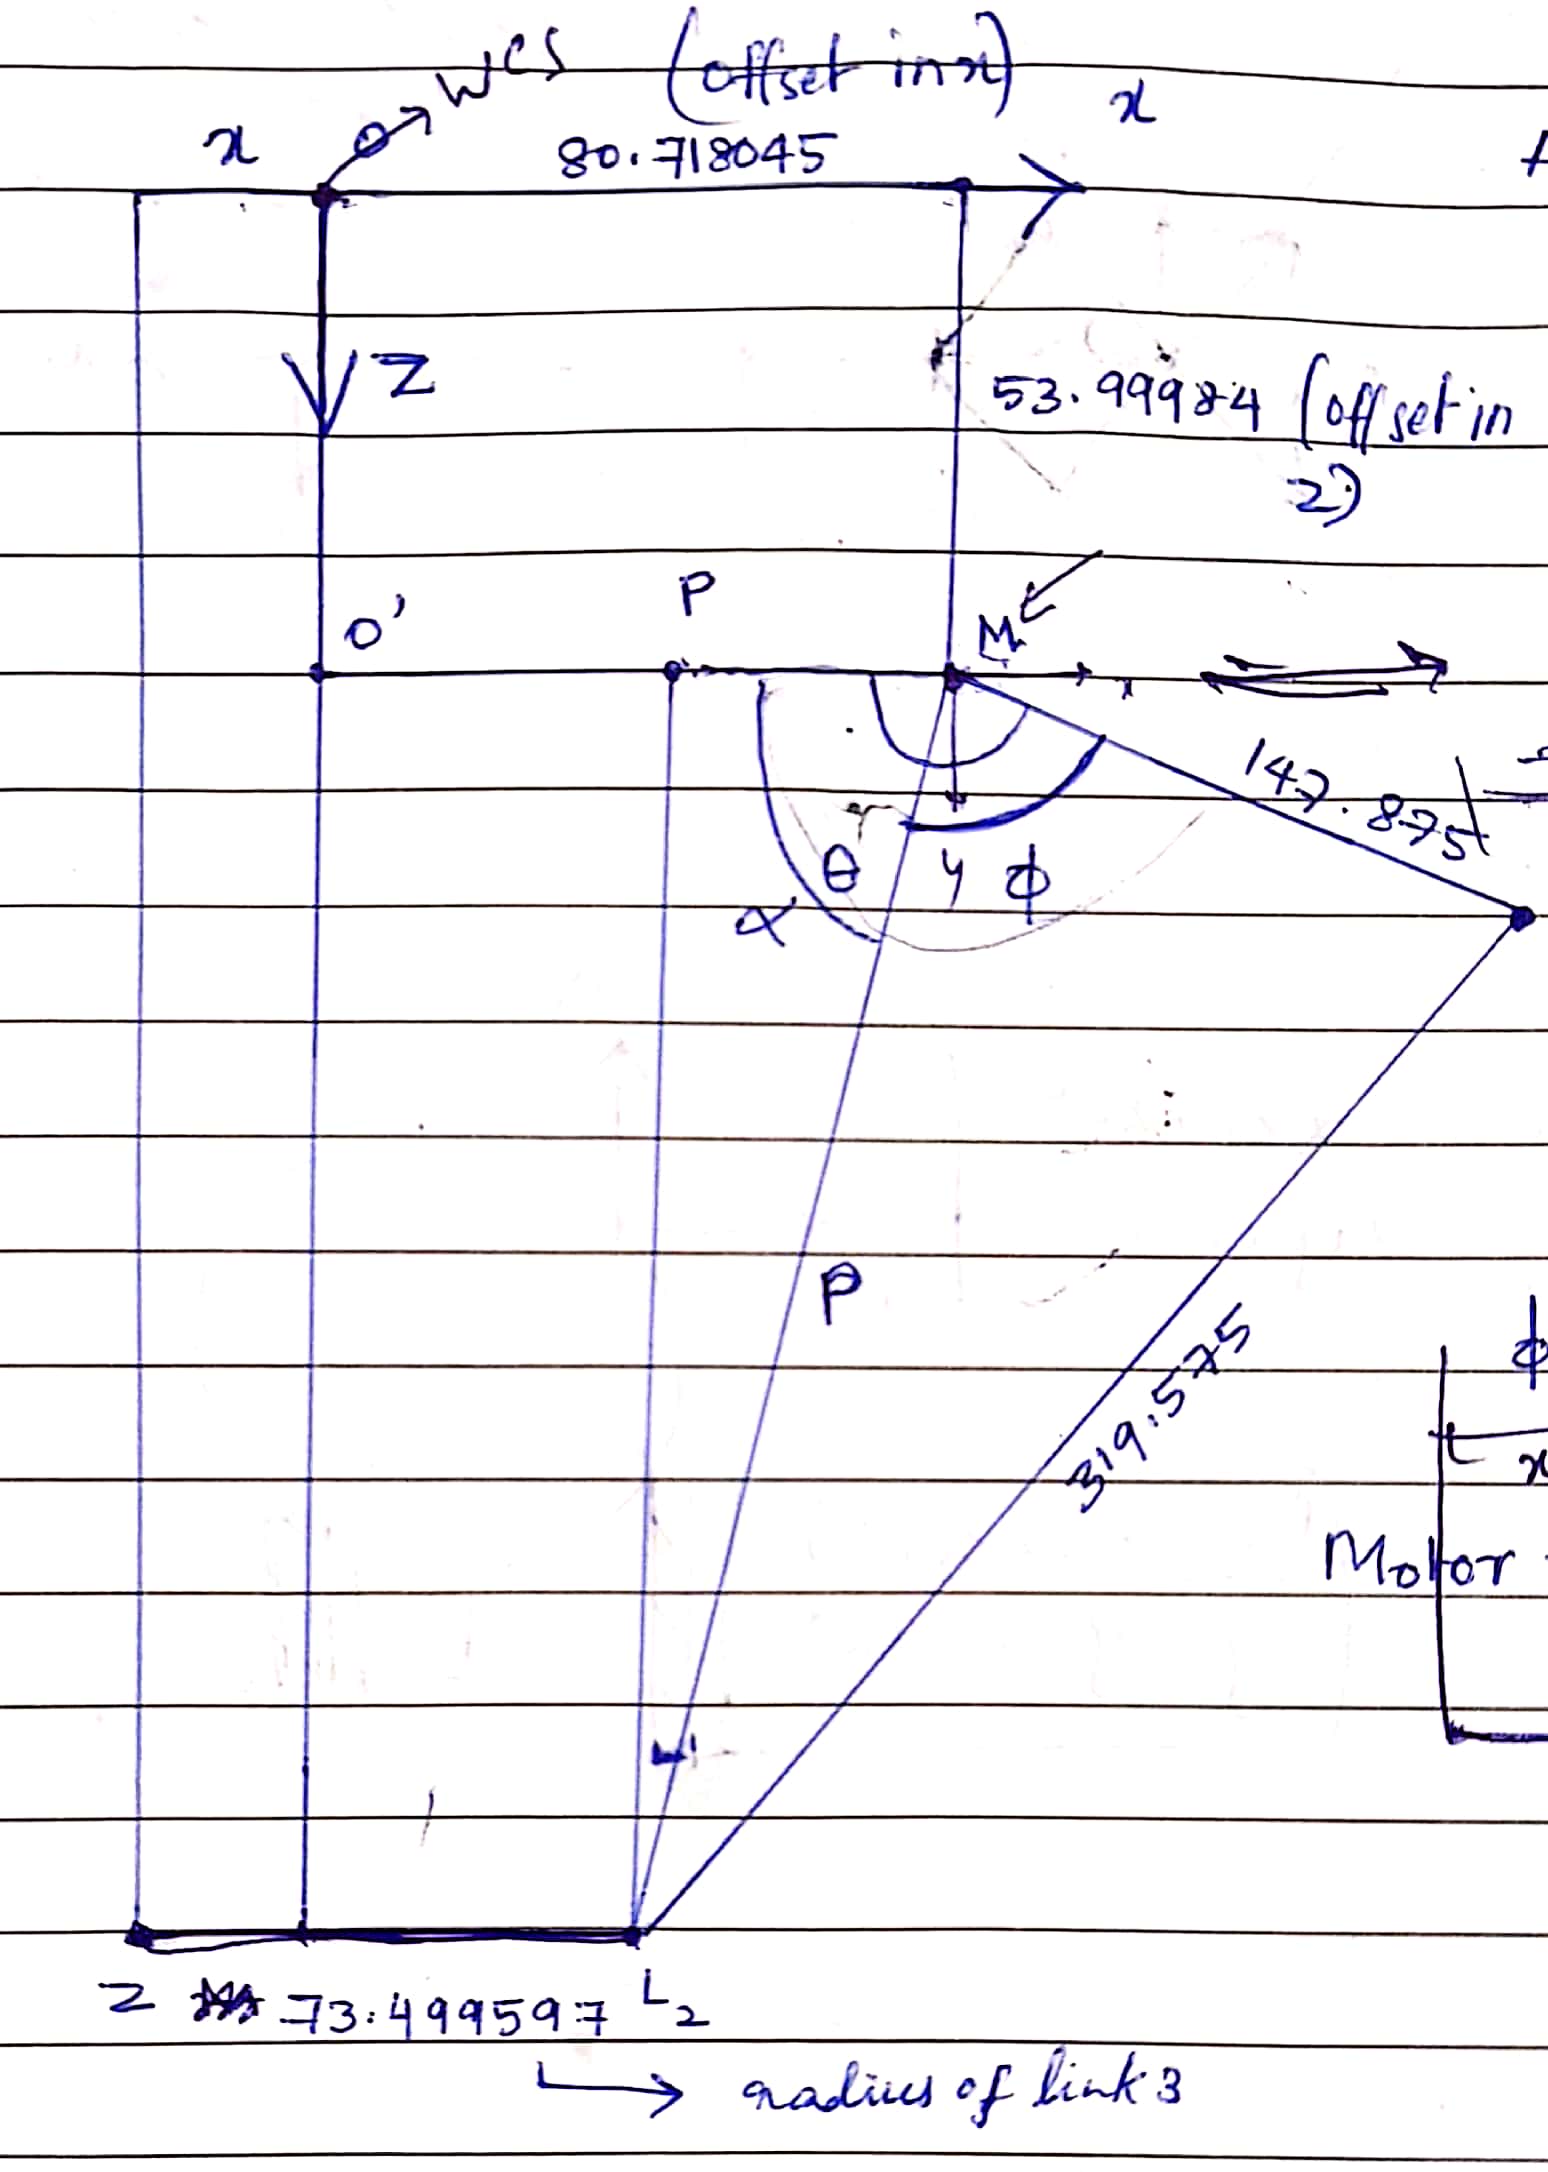 WCS (offset in x)
x 80.718045 x
Z
53.99984 (offset in
z)
P
O' M
x
147.875
θ y φ
α
P
319.575
φ
x
Motor
Z 73.499597 L2
radius of link 3